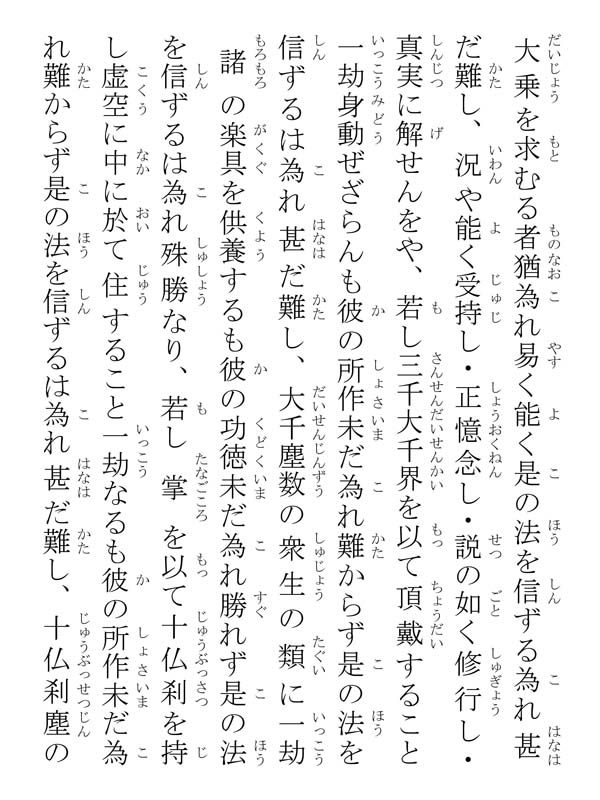 大乗を求むる者猶為れ易く能く是の法を信ずる為れ甚
だ難し、況や能く受持し・正憶念し・説の如く修行し・
真実に解せんをや、若し三千大千界を以て頂戴すること
一劫身動ぜざらんも彼の所作未だ為れ難からず是の法を
信ずるは為れ甚だ難し、大千塵数の衆生の類に一劫
諸の楽具を供養するも彼の功徳未だ為れ勝れず是の法
を信ずるは為れ殊勝なり、若し掌を以て十仏刹を持
し虚空に中に於て住すること一劫なるも彼の所作未だ為
れ難からず是の法を信ずるは為れ甚だ難し、十仏刹塵の